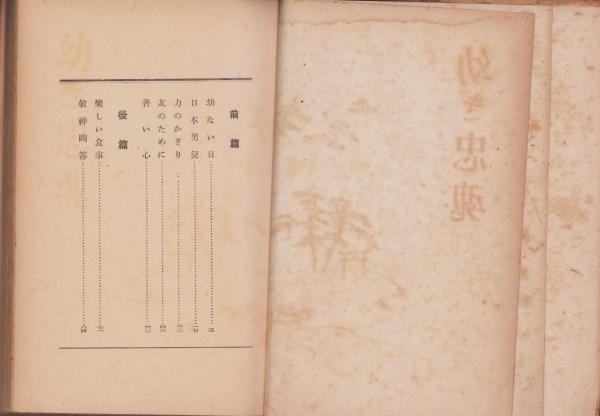 幼き忠魂
前篇
幼ない日
日本男兒……一七
力のかぎり
友のために
善い心……六〇
後篇
樂しい食事
敬神問答……八四